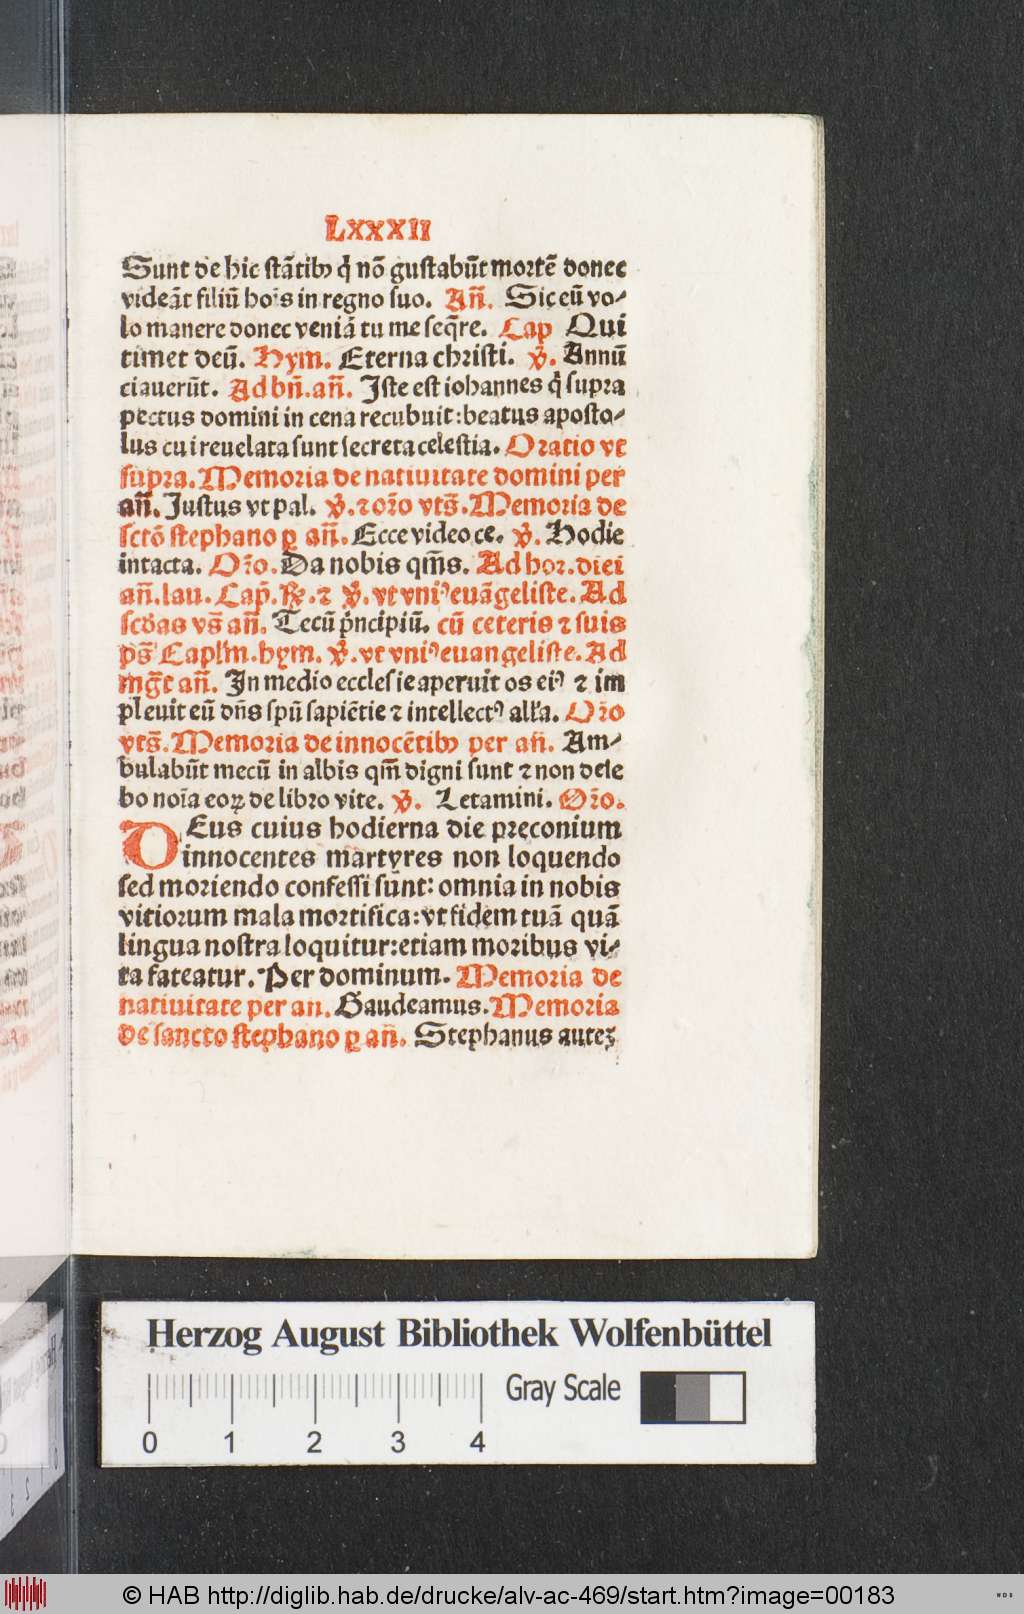 LXXXII
Sunt de hic stātibꝫ q̇ nō gustabūt mortē donec
videāt filiū hoı̄s in regno suo. Añ. Sic eū vo⸗
lo manere donec veniā tu me seq̄re. Cap Qui
timet deū. Hym. Eterna christi. ꝟ. Annū
ciauerūt. Ad bñ.añ. Iste est iohannes q̇ supra
pectus domini in cena recubuit:beatus aposto⸗
lus cui reuelata sunt secreta celestia. Oratio vt
supra. Memoria de natiuitate domini per
añ. Justus vt pal. ꝟ. ⁊ or̄o vts̄. Memoria de
sctō stephano ꝑ añ. Ecce video ce. ꝟ. Hodie
intacta. Or̄o. Da nobis qm̄s. Ad hor.diei
añ.lau. Cap̄. ℟. ⁊ ꝟ. vt vniꝰ euāgeliste. Ad
scd̄as vs̄ añ. Tecū p̄ncipiū. cū ceteris ⁊ suis
ps̄ Capl'm.hym. ꝟ. vt vniꝰ euangeliste. Ad
mḡt añ. In medio ecclesie aperuit os eiꝰ ⁊ im
pleuit eū dn̄s spū sapiētie ⁊ intellectꝰ all'a. Or̄o
vts̄. Memoria de innocētibꝫ per añ. Am⸗
bulabūt mecū in albis qm̄ digni sunt ⁊ non dele
bo noı̄a eoꝝ de libro vite. ꝟ. Letamini. Or̄o.
DEus cuius hodierna die pręconium
innocentes martyres non loquendo
sed moriendo confessi sunt: omnia in nobis
vitiorum mala mortifica:vt fidem tuā quā
lingua nostra loquitur:etiam moribus vi⸗
ta fateatur. Per dominum. Memoria de
natiuitate per an. Gaudeamus. Memoria
de sancto stephano ꝑ añ. Stephanus auteꝫ
Herzog August Bibliothek Wolfenbüttel
Gray Scale
0 1 2 3 4
© HAB http://diglib.hab.de/drucke/alv-ac-469/start.htm?image=00183